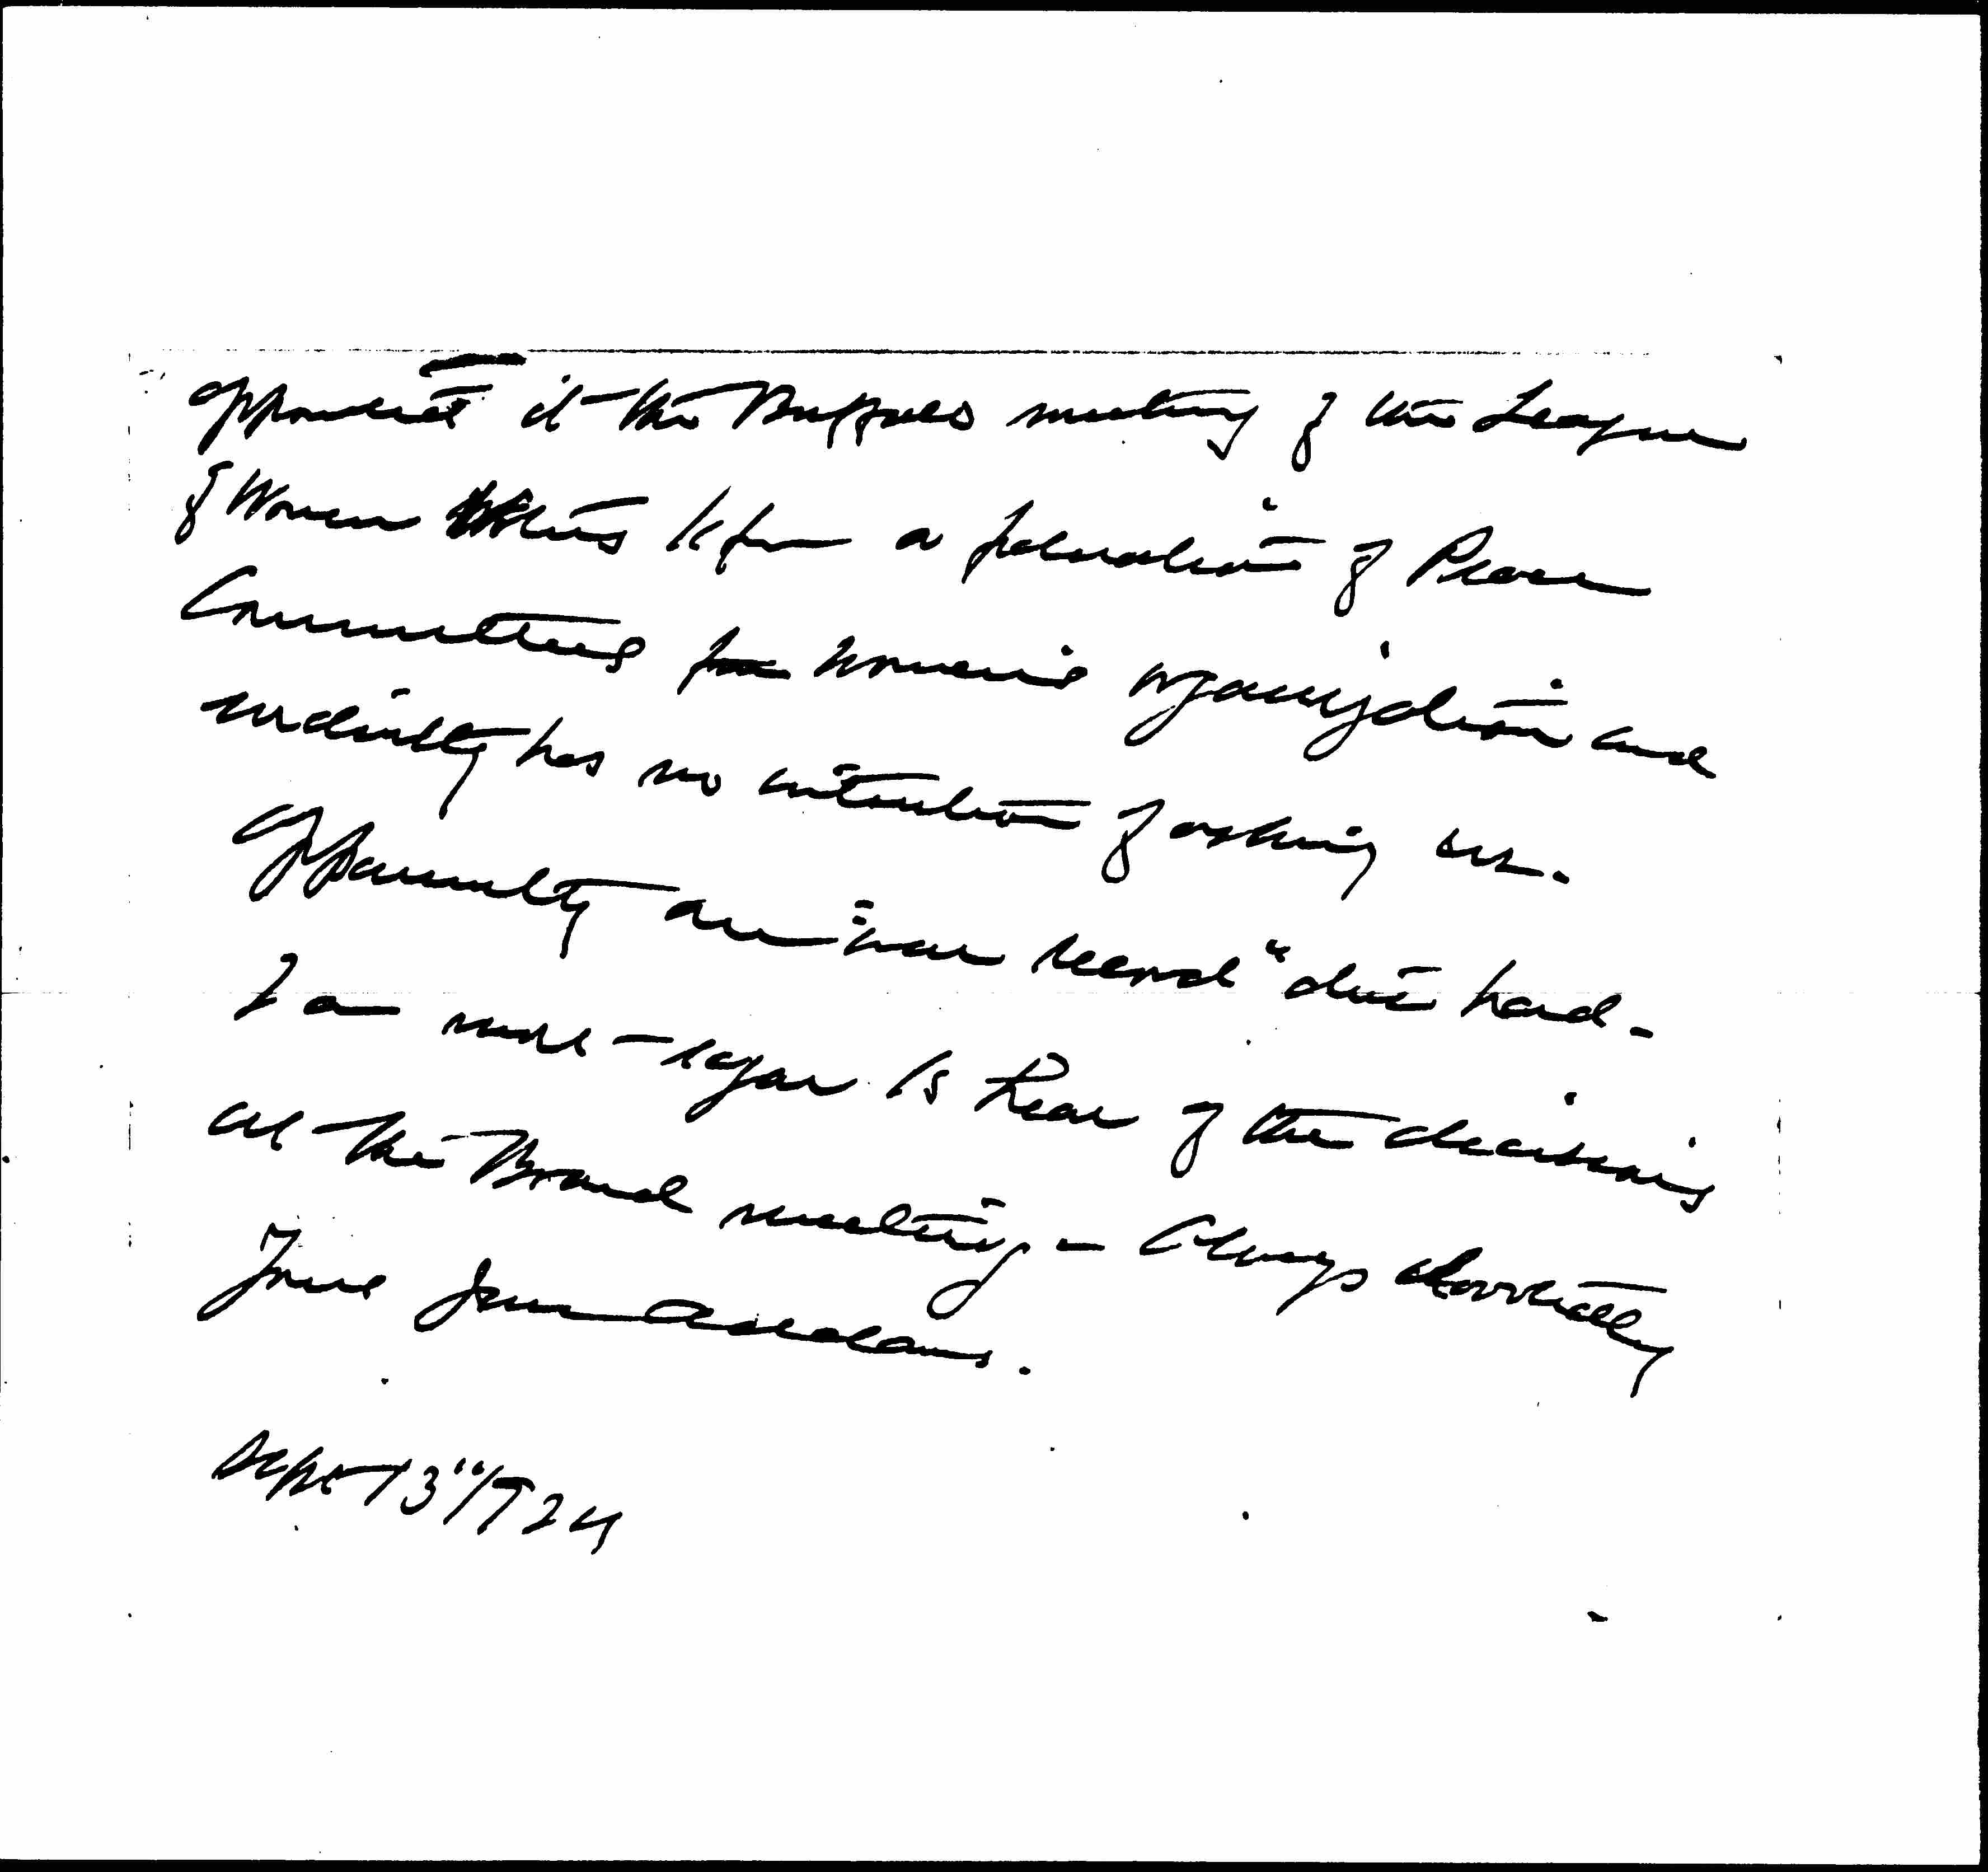 appointed at the Buffalo meeting of the League
of Women Voters to form a federation of Peace
Committees from women's organization and
evidently has no intention of asking us.
Apparently our "war record" dies hard -
I am more - eager to hear of the decisions
at the Board meeting - Always devotedly
Yours Jane Addams.
Sept 13"/1924